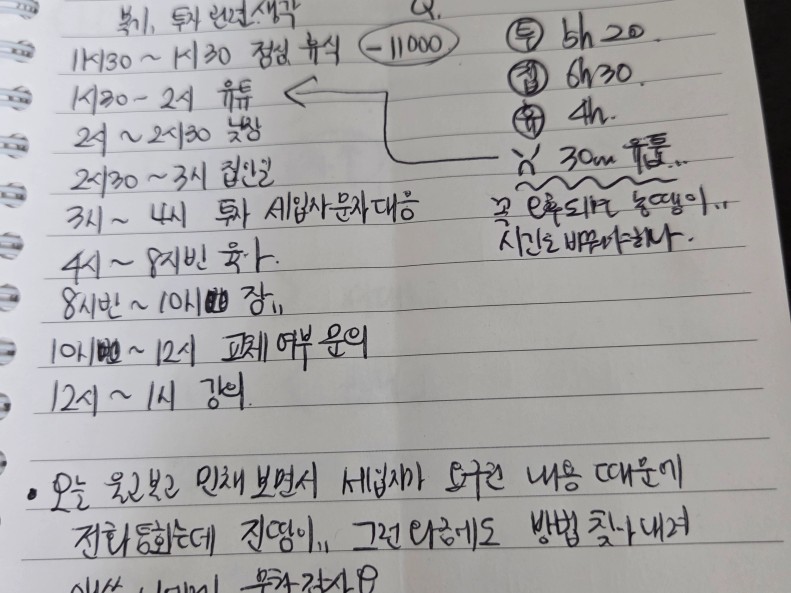 복기, 투자 관련 생각
11시30 ~ 1시30 점심 휴식 -11000
1시30 - 2시 유튭
2시 ~ 2시30 낮잠
2시30 ~ 3시 집안일
3시 ~ 4시 투자 세입자문자대응
4시 ~ 8시반 육아.
8시반 ~ 10시 잠,,
10시 ~ 12시 교체여부 문의
12시 ~ 1시 강의.
투 5h 20.
잡 6h30.
휴 4h.
30m 유튭...
꼭 오후되면 농땡이,,
시간을 바꿔야하나.
• 오늘 울고보고 인채보면서 세입자가 요구한 내용 때문에
전화통화는데 진땀이,, 그런 와중에도 방법 찾아내려